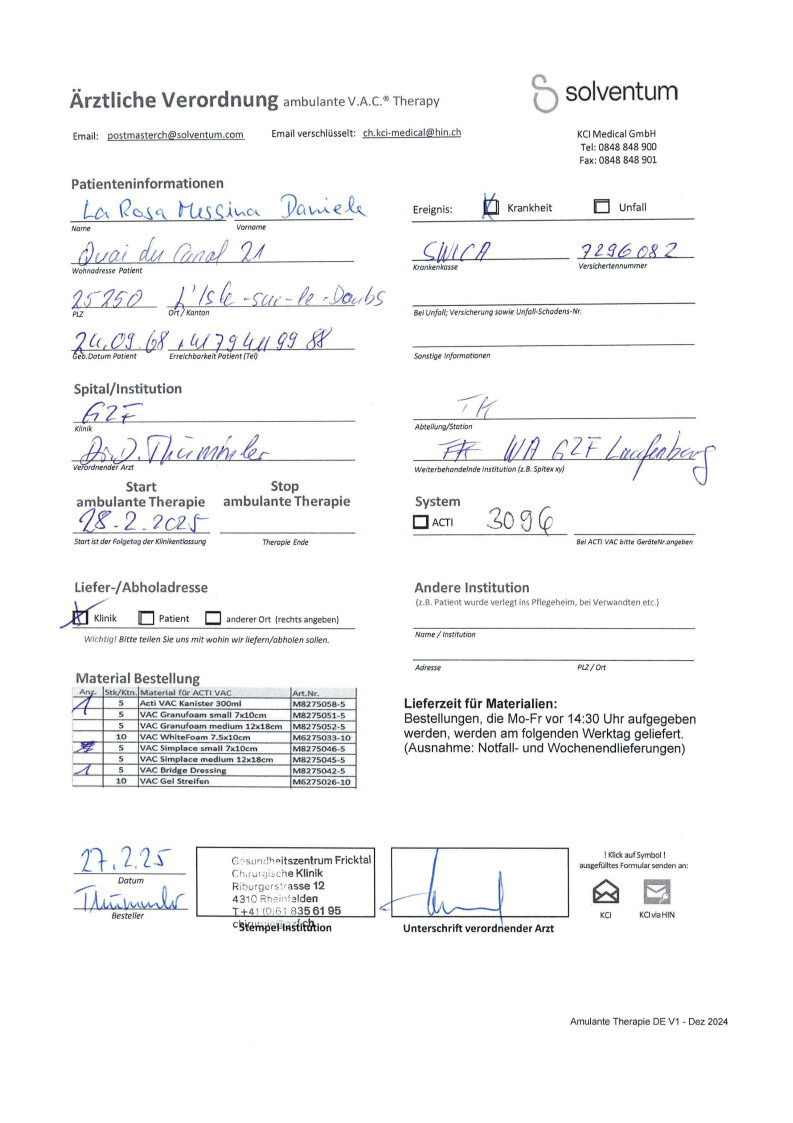 Ärztliche Verordnung ambulante V.A.C.® Therapy
solventum
Email: postmasterch@solventum.com Email verschlüsselt: ch.kci-medical@hin.ch
KCI Medical GmbH
Tel: 0848 848 900
Fax: 0848 848 901
Patienteninformationen
La Rosa Messina Daniele
Name Vorname
Quai du Canal 21
Wohnadresse Patient
25250 L'Isle-sur-le-Doubs
PLZ Ort / Kanton
24.09.68 +41 79 411 99 88
Geb.Datum Patient Erreichbarkeit Patient (Tel)
Ereignis: Krankheit Unfall
SWICA 7296082
Krankenkasse Versichertennummer
Bei Unfall; Versicherung sowie Unfall-Schadens-Nr.
Sonstige Informationen
Spital/Institution
GZF
Klinik
Dr. D. Thümmler
Verordnender Arzt
Abteilung/Station
WA GZF Laufenburg
Weiterbehandelnde Institution (z.B. Spitex xy)
Start ambulante Therapie
Stop ambulante Therapie
28.2.2025
Start ist der Folgetag der Klinikentlassung Therapie Ende
System
ACTI 3096
Bei ACTI VAC bitte GeräteNr.angeben
Liefer-/Abholadresse
Klinik Patient anderer Ort (rechts angeben)
Wichtig! Bitte teilen Sie uns mit wohin wir liefern/abholen sollen.
Andere Institution
(z.B. Patient wurde verlegt ins Pflegeheim, bei Verwandten etc.)
Name / Institution
Adresse PLZ / Ort
Material Bestellung
Anz. Stk/Ktn. Material für ACTI VAC Art.Nr.
1 5 Acti VAC Kanister 300ml M8275058-5
5 VAC Granufoam small 7x10cm M8275051-5
5 VAC Granufoam medium 12x18cm M8275052-5
10 VAC WhiteFoam 7.5x10cm M6275033-10
5 VAC Simplace small 7x10cm M8275046-5
5 VAC Simplace medium 12x18cm M8275045-5
1 5 VAC Bridge Dressing M8275042-5
10 VAC Gel Streifen M6275026-10
Lieferzeit für Materialien:
Bestellungen, die Mo-Fr vor 14:30 Uhr aufgegeben
werden, werden am folgenden Werktag geliefert.
(Ausnahme: Notfall- und Wochenendlieferungen)
27.2.25
Datum
Thümmler
Besteller
Gesundheitszentrum Fricktal
Chirurgische Klinik
Riburgerstrasse 12
4310 Rheinfelden
T +41 (0)61 835 61 95
Stempel Institution
Unterschrift verordnender Arzt
! Klick auf Symbol !
ausgefülltes Formular senden an:
KCI KCI via HIN
Amulante Therapie DE V1 - Dez 2024